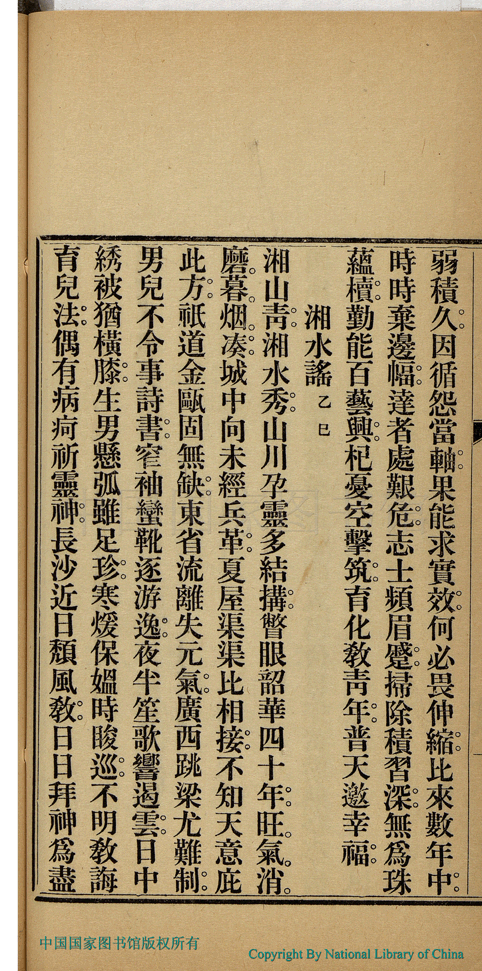 弱積久。因循怨當軸。果能求實效。何必畏伸縮。比來數年中。
時時棄邊幅。達者處艱危。志士頻眉蹙。掃除積習深。無為珠
蘊櫝。勤能百藝興。杞憂空擊筑。育化敎靑年。普天邀幸福。
湘水謠 乙巳
湘山靑。湘水秀。山川孕靈多結搆。瞥眼韶華四十年。旺氣。消。
磨。暮。烟。凑。城中向未經兵革。夏屋渠渠比相接。不知天意庇
此方。祇道金甌固無缺。東省流離失元氣。廣西跳梁尤難制。
男兒不令事詩書。窄袖蠻靴逐游逸。夜半笙歌響遏雲。日中
綉被猶橫膝。生男懸弧雖足珍。寒煖保媼時晙巡。不明敎誨
育兒法。偶有病疴祈靈神。長沙近日頹風敎。日日拜神為盡
中国国家图书馆版权所有
Copyright By National Library of China